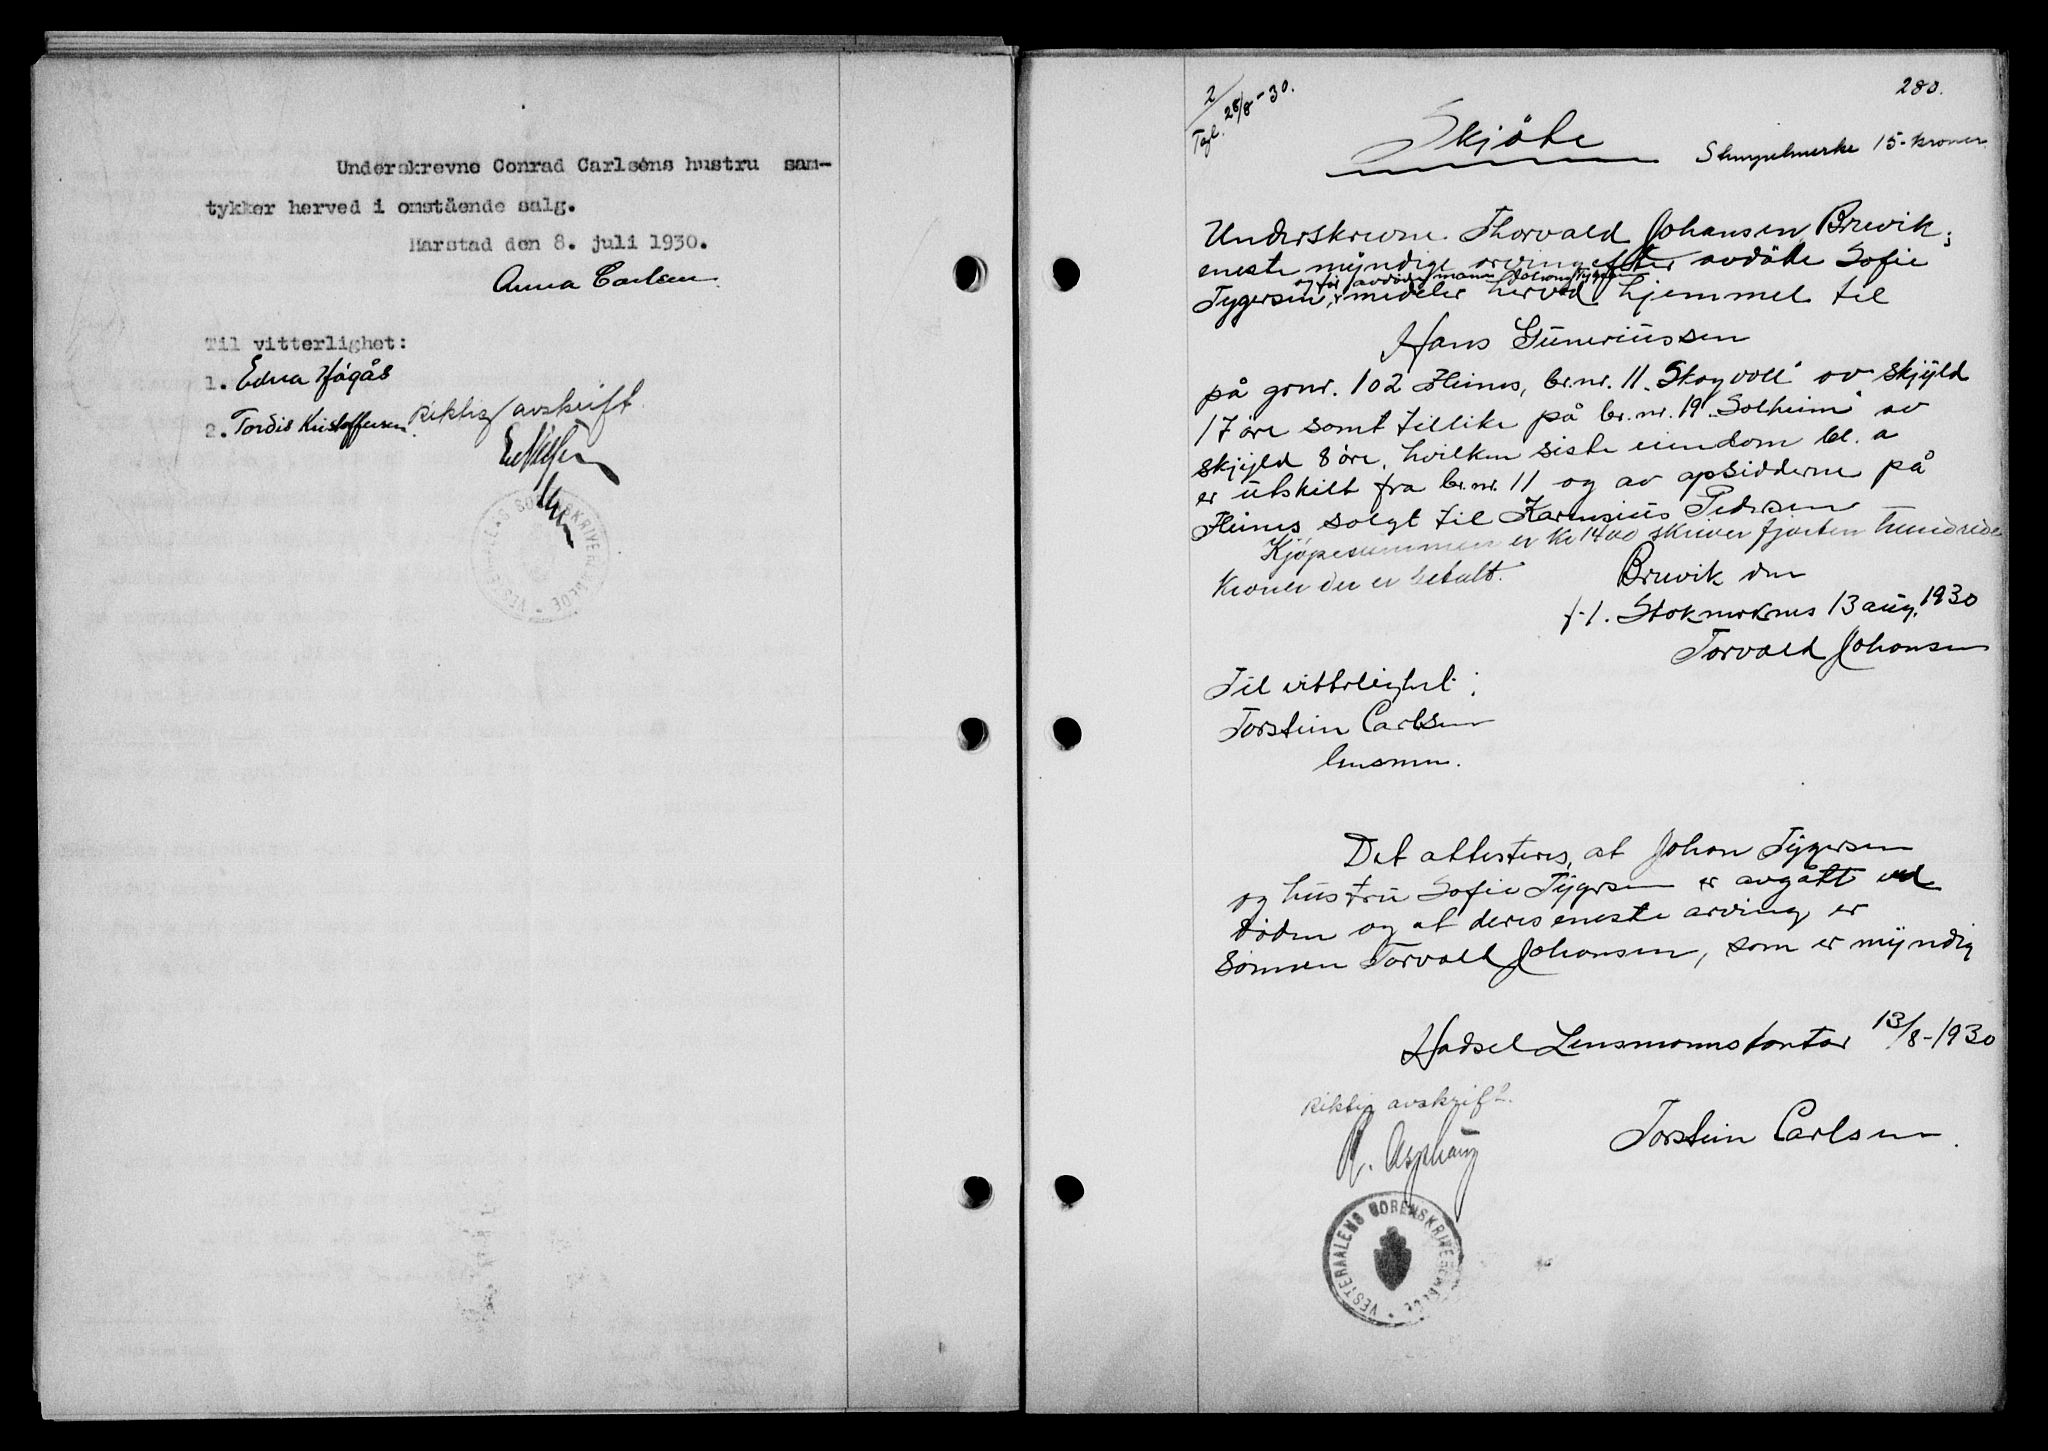 Underskrevne Conrad Carlsens hustru sam-
tykker herved i omstående salg.
Harstad den 8. juli 1930.
Anna Carlsen
Til vitterlighet:
1. Edna Hågås
2. Tordis Kristoffersen
Riktig avskrift
VESTERAALENS SORENSKRIVEREMBEDE
280.
2/
Tgl. 28/8-30.
Skjöte
Stempelmerke 15-kroner
Underskrevne Thorvald Johansen Brevik,
eneste myndige arving efter avdöde Sofie
og før avdöde mann Johan Tygersen
Tygersen, medeler herved hjemmel til
Hans Guneriussen
på gnr. 102 Heines, br.nr. 11 "Skogvoll" av skyld
17 øre samt tillike på br.nr. 19 "Solheim" av
skyld 8 øre, hvilken siste eiendom bl. a
er utskilt fra br.nr. 11 og av opsidderne på
Heines solgt til Karensius Pedersen
Kjøpesummen er kr 1400 skriver fjorten hundrede
kroner der er betalt.
Brevik den
f.t. Stokmarknes 13 aug. 1930
Torvald Johansen
Til vitterlighet:
Torstein Carlsen
lensmn.
Det attesteres, at Johan Tygersen
og hustru Sofie Tygersen er avgått ved
døden og at deres eneste arving er
sønnen Torvald Johansen, som er myndig
Hadsel Lensmannskontor 13/8-1930
Riktig avskrift.
Torstein Carlsen.
R. Asphaug
VESTERAALENS SORENSKRIVEREMBEDE